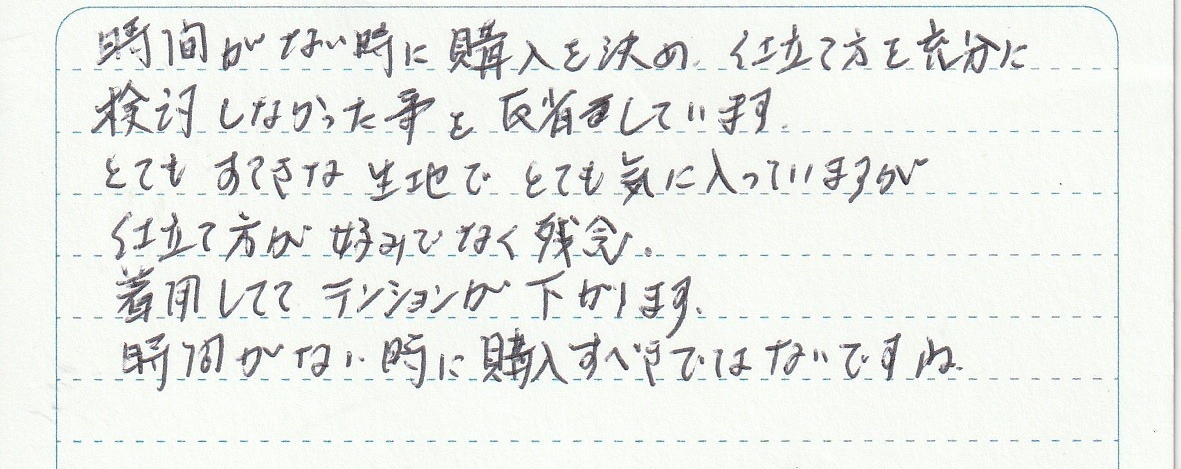 時間がない時に購入を決め、仕立て方を充分に
検討しなかった事を反省しています。
とてもすてきな生地でとても気に入っていますが
仕立て方が好みでなく残念。
着用してて テンションが下がります。
時間がない時に購入すべきではないですね。